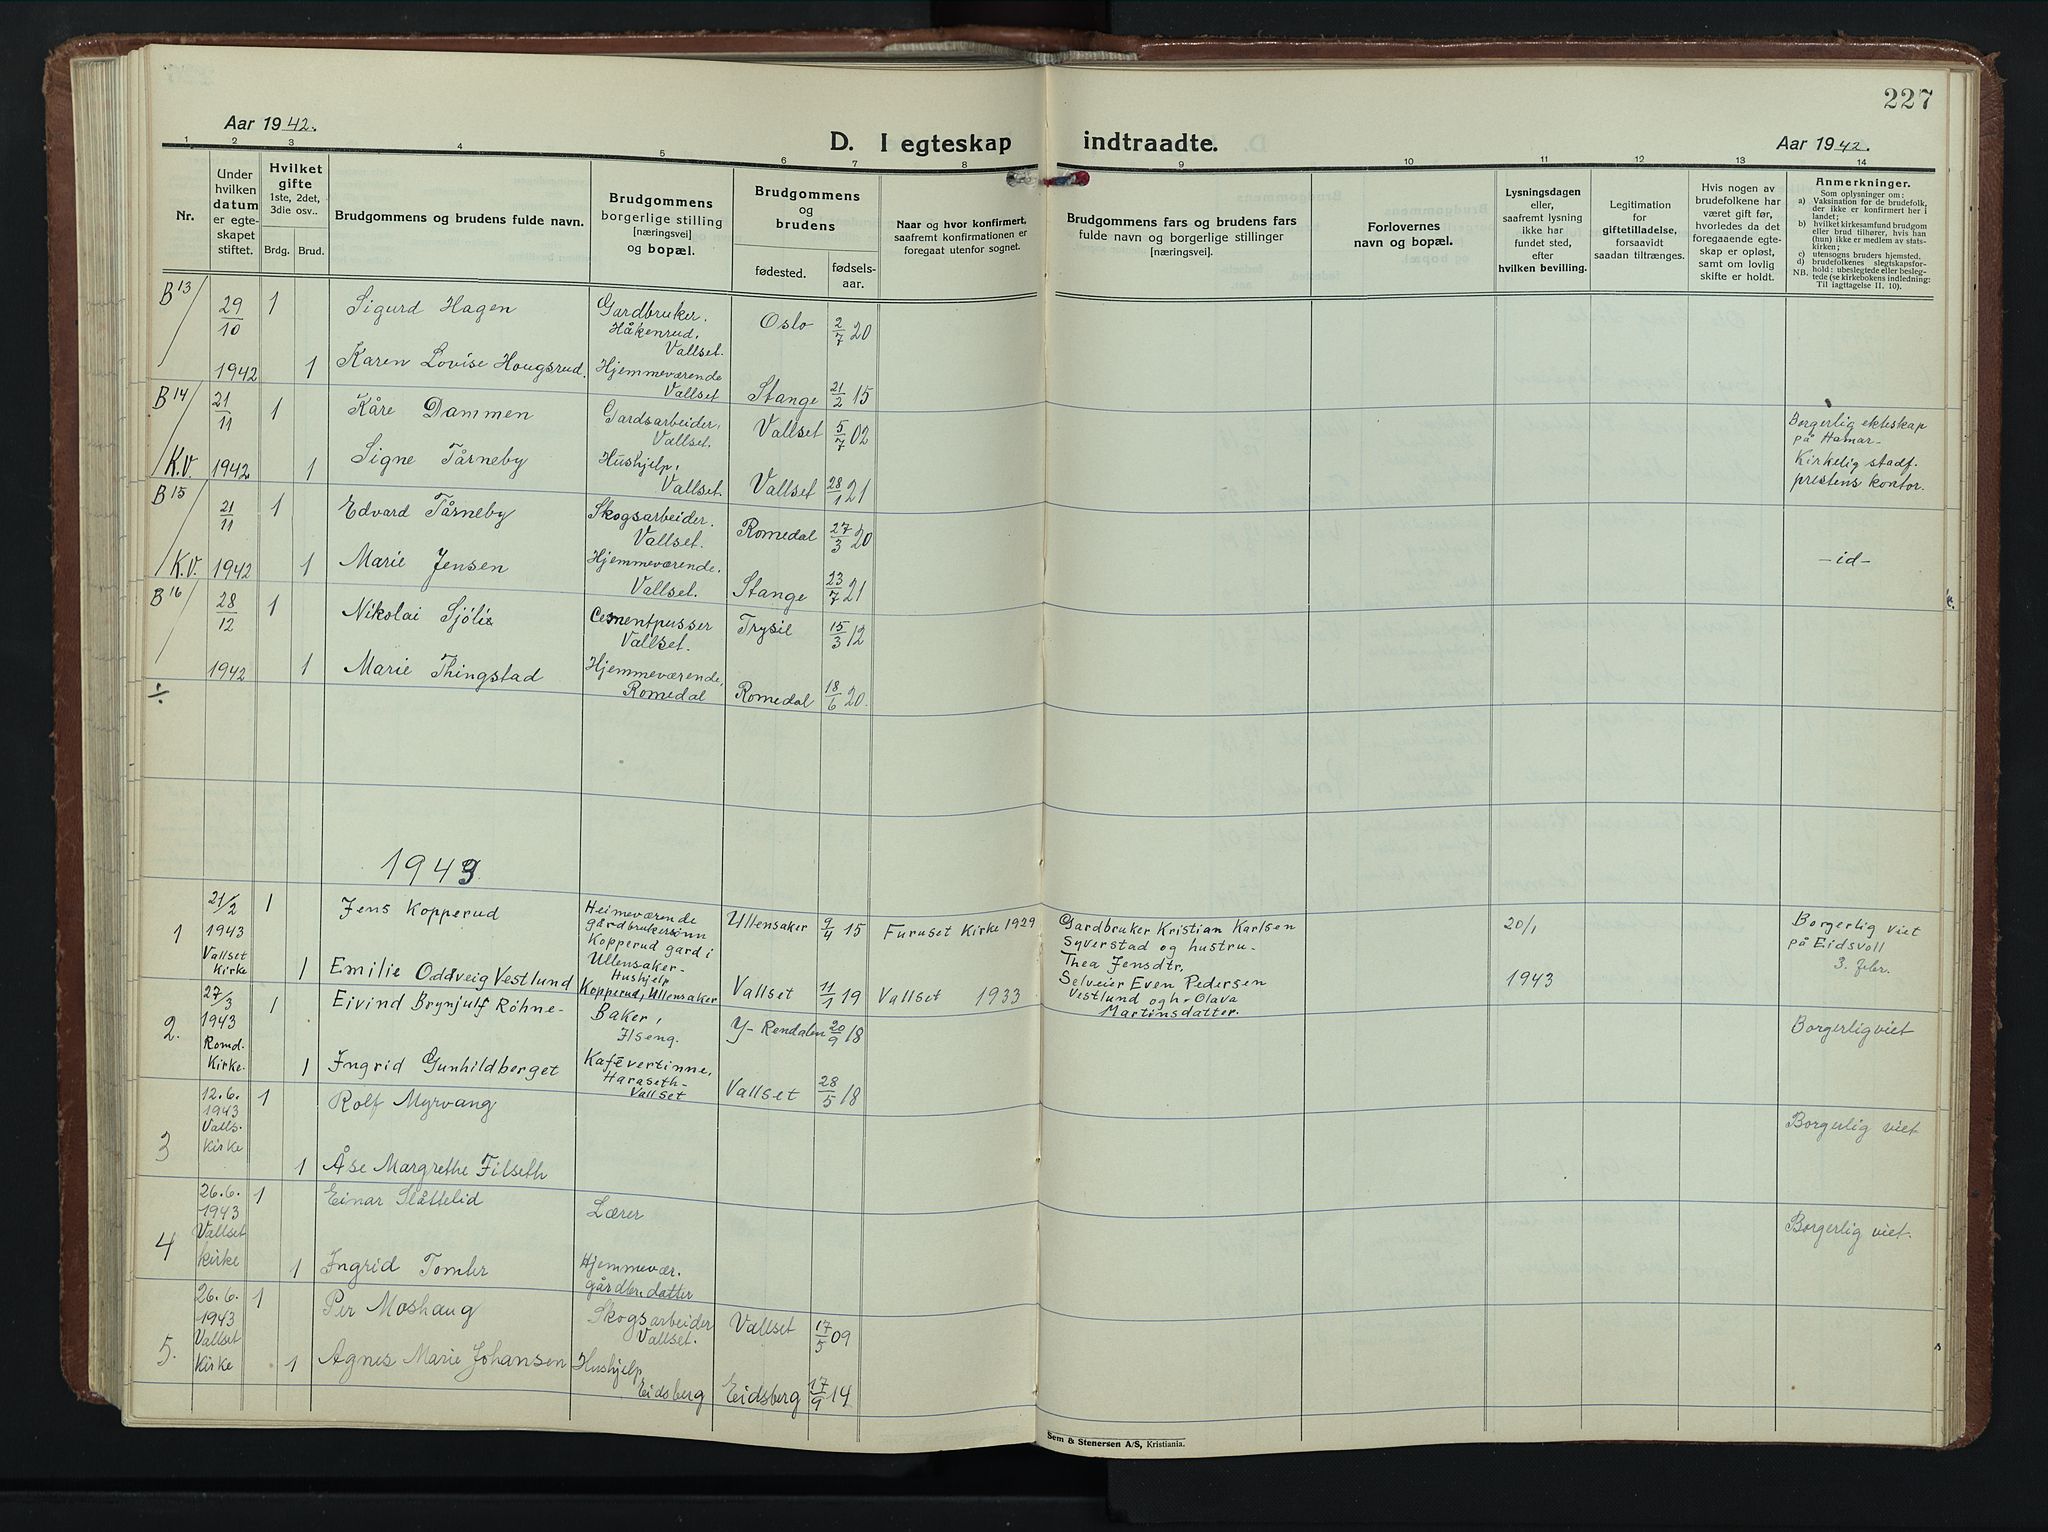 227
Aar 1942.
D. I egteskap indtraadte.
Aar 1942.
1 2 3 4 5 6 7 8 9 10 11 12 13 14
Nr.
Under hvilken datum er egteskapet stiftet.
Hvilket gifte
1ste, 2det, 3die osv..
Brdg. Brud.
Brudgommens og brudens fulde navn.
Brudgommens borgerlige stilling [næringsvei] og bopæl.
Brudgommens og brudens
fødested. fødselsaar.
Naar og hvor konfirmert, saafremt konfirmationen er foregaat utenfor sognet.
Brudgommens fars og brudens fars fulde navn og borgerlige stillinger [næringsvei].
Forlovernes navn og bopæl.
Lysningsdagen eller, saafremt lysning ikke har fundet sted, efter hvilken bevilling.
Legitimation for giftetilladelse, forsaavidt saadan tiltrænges.
Hvis nogen av brudefolkene har været gift før, hvorledes da det foregaaende egteskap er opløst, samt om lovlig skifte er holdt.
Anmerkninger.
Som oplysninger om:
a) Vaksination for de brudefolk, der ikke er konfirmert her i landet;
b) hvilket kirkesamfund brudgom eller brud tilhører, hvis han (hun) ikke er medlem av statskirken;
c) utensogns bruders hjemsted.
d) brudefolkenes slegtskapsforhold: ubeslegtede eller beslegtede (se kirkebokens indledning:
NB. Til iagttagelse II. 10).
B 13 29/10 1 Sigurd Hagen Gardbruker. Håkenrud, Vallset. Oslo 2/7 20
1942 1 Karen Lovise Hougsrud. Hjemmeværende Vallset Stange 21/2 15
B 14 21/11 1 Kåre Dammen Gardsarbeider, Vallset. Vallset 5/7 02
Borgerlig ekteskap
på Hamar-
Kirkelig stadf.
prestens kontor.
K.V. 1942 1 Signe Tårneby Hushjelp, Vallset. Vallset 28/1 21
B 15 21/11 1 Edvard Tårneby Skogsarbeider. Vallset. Romedal 27/3 20
K.V. 1942 1 Marie Jensen Hjemmeværende. Vallset. Stange 23/7 21
-id-
B 16 28/12 1 Nikolai Sjölie Cementpusser Vallset. Trysil 15/3 12
1942 1 Marie Thingstad Hjemmeværende, Romedal Romedal 18/6 20.
÷
1943
1 21/2 1943 Vallset Kirke 1 Jens Kopperud Heimeværende gårdbrukersønn Kopperud gard i Ullensaker- Ullensaker 9/4 15 Furuset Kirke 1929
Gardbruker Kristian Karlsen
Syverstad og hustru-
Thea Jensdtr.
20/1
Borgerlig viet
på Eidsvoll
3. febr.
1 Emilie Oddveig Vestlund Hushjelp Kopperud, Ullensaker Vallset 11/1 19 Vallset 1933
Selveier Even Pedersen
Vestlund og h. Olava
Martinsdatter.
1943
2. 27/3 1943 Romd. Kirke. 1 Eivind Brynjulf Röhne- Baker, Ilseng. Y-Rendalen 20/9 18
Borgerlig viet
1 Ingrid Gunhildberget Kafévertinne, Haraseth- Vallset Vallset 28/5 18
3 12.6. 1943 Valls. Kirke 1 Rolf Myrvang
Borgerlig viet
1 Åse Margrethe Filseth
4 26.6. 1943 Vallset kirke 1 Einar Slåttelid Lærer
Borgerlig viet.
1 Ingrid Tomter Hjemmevær. gårdbr. datter
5. 26.6. 1943 Vallset Kirke 1 Per Moshaug Skogsarbeider Vallset. Vallset 17/5 09
1 Agnes Marie Johansen Hushjelp Eidsberg Eidsberg 17/9 14
Sem & Stenersen A/S, Kristiania.